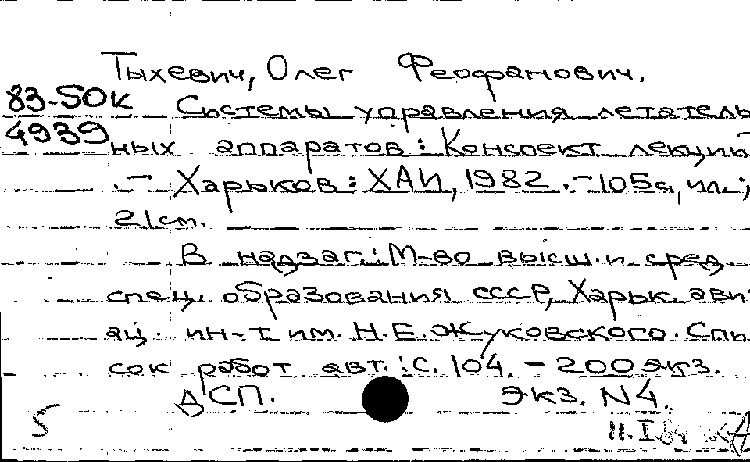 Тыхевич, Олег Феофанович.
83-5ОК Системы управления летатель
4939 ных аппаратов: Конспект лекций
— Харьков: ХАИ, 1982. - 105с., ил.;
21см.
В надзаг.: М-во высш. и сред.
спец. образования СССР, Харьк. ави
ац. ин-т им. Н.Е. Жуковского. Спи
сок работ авт.: С. 104. - 200 экз.
ДСП. Экз. N4.
5